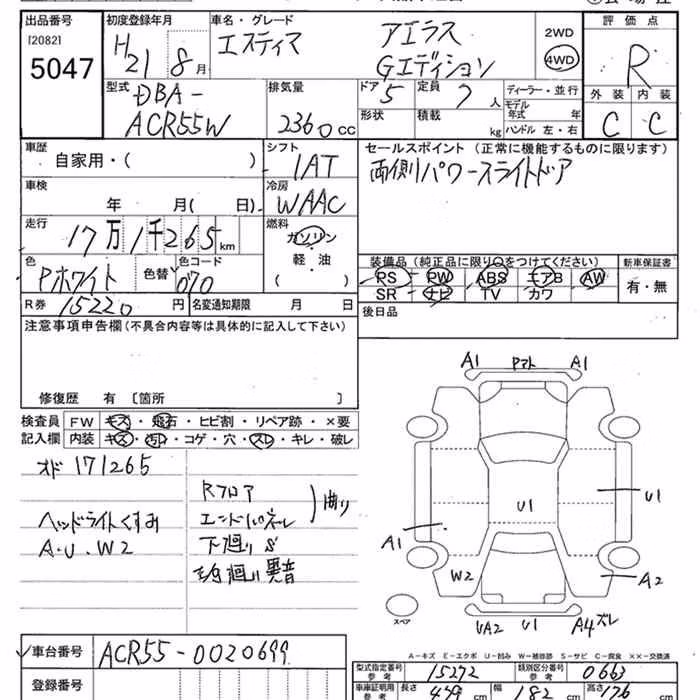 出品番号 初度登録年月 車名・グレード 評価点
[2082] H21 8月 エスティマ アエラス 2WD
5047 Gエディション 4WD R
型式 排気量 ドア 5 定員 7人 ディーラー・並行 外装 内装
DBA- モデル年式 年
ACR55W 2360cc 形状 積載 kg ハンドル 左・右 C C
車歴 シフト セールスポイント (正常に機能するものに限ります)
自家用・( ) IAT 両側パワースライドドア
車検 冷房
年 月( 日) WAAC
走行 燃料
17万1千265km ガソリン
軽・油
( )
色 色替 色コード 装備品 (純正品に限り○をつけてください) 新車保証書
Pホワイト 070 RS PW ABS エアB AW 有・無
SR ナビ TV カワ
R券 15220円 名変通知期限 月 日 後日品
注意事項申告欄 (不具合内容等は具体的に記入して下さい)
修復歴 有 [箇所 ]
検査員 FW キズ・飛石・ヒビ割・リペア跡・×要
記入欄 内装 キズ・汚れ・コゲ・穴・スレ・キレ・破レ
オド 171265
ヘッドライトくすみ
A・U・W2
Rフロア
エンドパネル
曲り
下廻りS
異音
A1 A1
U1 U1
A1
W2 A2
スペア UA2 U1 A4ズレ
A-キズ E-エクボ U-凹み W-補修跡 S-サビ C-腐食 ××-交換済
車台番号 ACR55-0020699
登録番号
型式指定番号 参考 15272 類別区分番号 参考 0663
車庫証明用 参考 長さ 479cm 幅 182cm 高さ 176cm